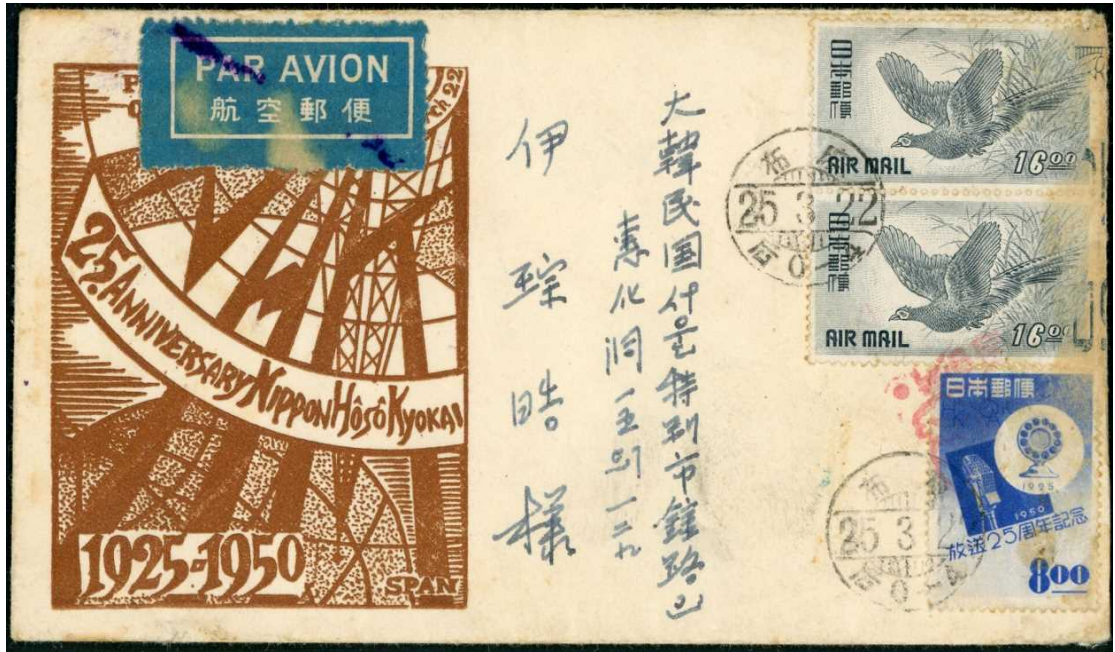 PAR AVION
航空郵便
th 22
25. ANNIVERSARY NIPPON HÔSÔ KYOKAI
1925-1950
SPAN
大韓民国서울特別市鍾路区
惠化洞一五의一二九
伊琮晧様
日本郵便
AIR MAIL
16.00
日本郵便
AIR MAIL
16.00
25.3.22
日本郵便
1925
1950
放送25周年記念
8.00
25.3.2